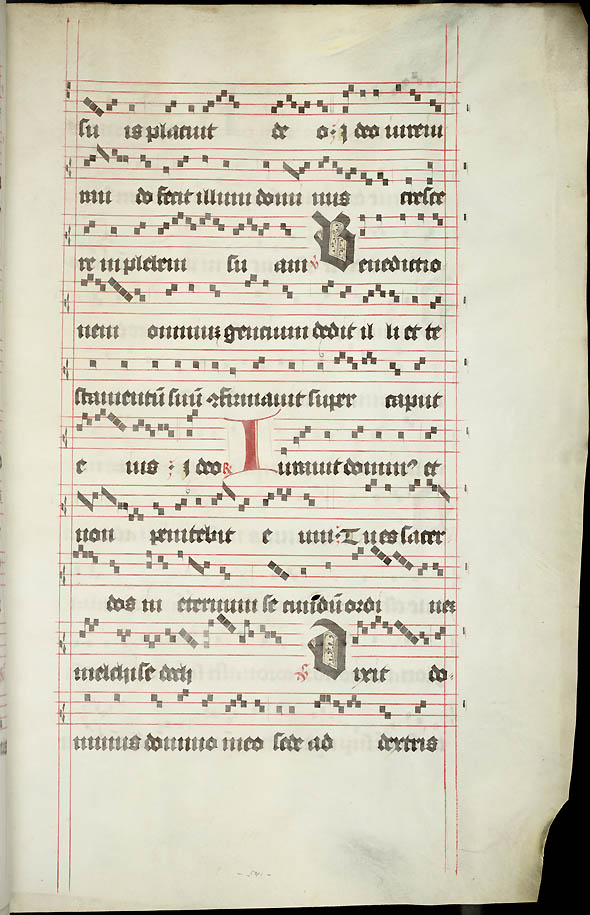 su is placuit de o : j deo iureiu
ran do fecit illum domi nus cresce
re in plebem su am ℣ Benedictio
nem omnium gentium dedit il li et te
stamentū suū ↄfirmauit super caput
e ius : j deo ℟ Iurauit dominꝰ et
non penitebit e um : Tu es sacer
dos in eternum se cundū ordi nem
melchise dech ℣ Dixit do
minus domino meo sede ad dextris